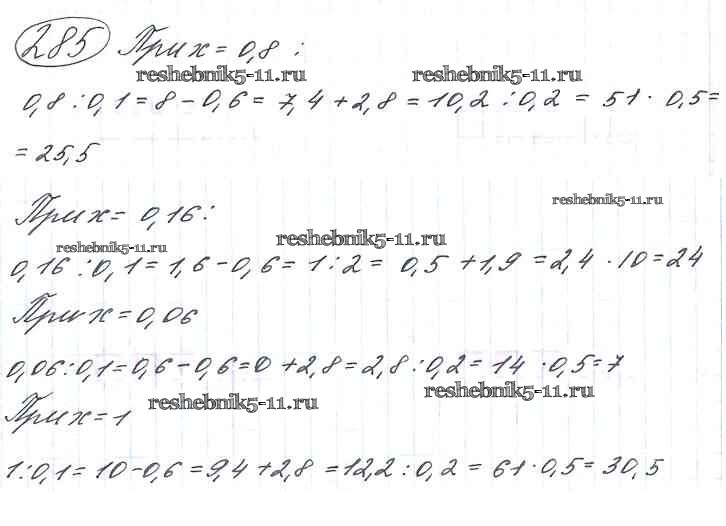 285 При x = 0,8 :
reshebnik5-11.ru reshebnik5-11.ru
0,8 : 0,1 = 8 - 0,6 = 7,4 + 2,8 = 10,2 : 0,2 = 51 · 0,5 =
= 25,5
reshebnik5-11.ru
При x = 0,16 :
reshebnik5-11.ru reshebnik5-11.ru
0,16 : 0,1 = 1,6 - 0,6 = 1 : 2 = 0,5 + 1,9 = 2,4 · 10 = 24
При x = 0,06
0,06 : 0,1 = 0,6 - 0,6 = 0 + 2,8 = 2,8 : 0,2 = 14 · 0,5 = 7
reshebnik5-11.ru reshebnik5-11.ru
При x = 1
1 : 0,1 = 10 - 0,6 = 9,4 + 2,8 = 12,2 : 0,2 = 61 · 0,5 = 30,5